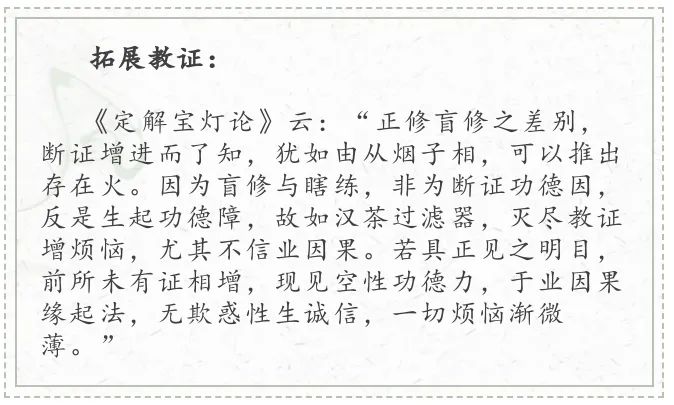 拓展教证：
《定解宝灯论》云：“正修盲修之差别，
断证增进而了知，犹如由从烟子相，可以推出
存在火。因为盲修与瞎练，非为断证功德因，
反是生起功德障，故如汉茶过滤器，灭尽教证
增烦恼，尤其不信业因果。若具正见之明目，
前所未有证相增，现见空性功德力，于业因果
缘起法，无欺惑性生诚信，一切烦恼渐微
薄。”